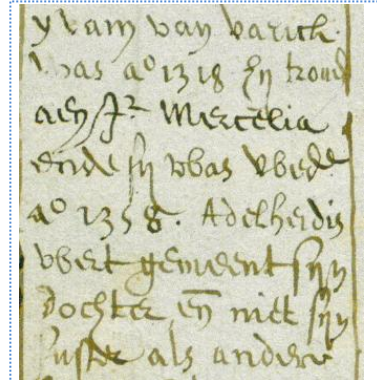 yvam van varick.
was aº 1318 hÿ troud
aen Jr Mercelia
ende sÿ was wede
aº 1358. Adelheidis
wert gemeent sÿn
dochter en̄ niet sÿn
suster als andere